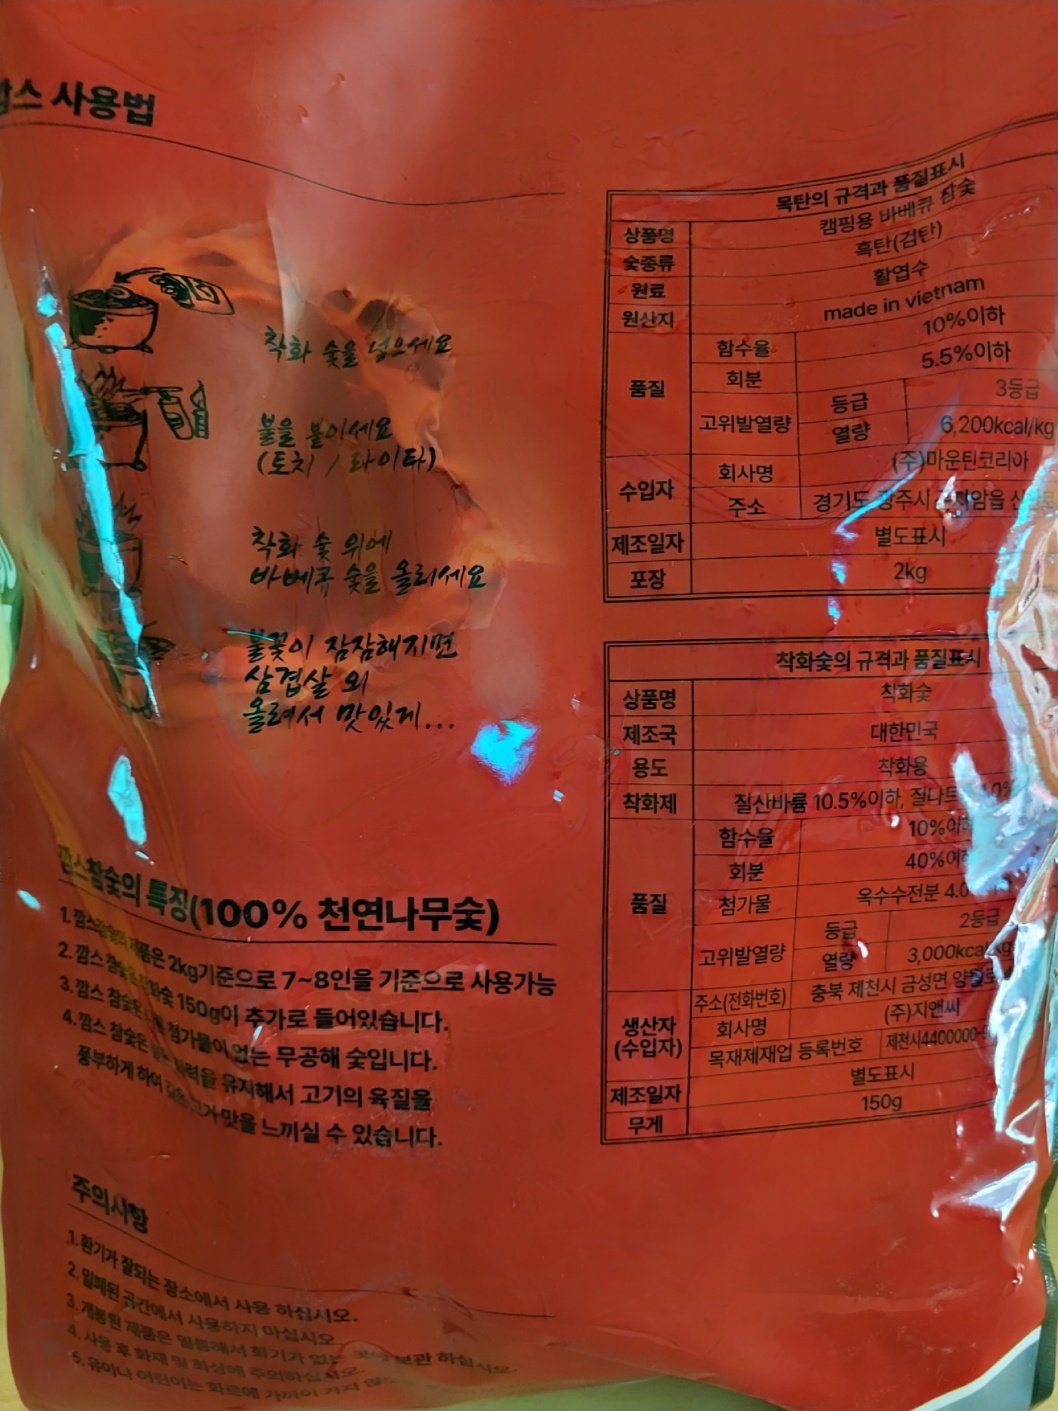 사용법
착화 숯을 넣으세요
불을 붙이세요
(토치 / 라이타)
착화 숯 위에
바베큐 숯을 올리세요
불꽃이 잠잠해지면
삼겹살 외
올려서 맛있게...
목탄의 규격과 품질표시
상품명 캠핑용 바베큐 참숯
숯종류 흑탄(검탄)
원료 활엽수
원산지 made in vietnam
품질 함수율 10%이하
회분 5.5%이하
고위발열량 등급 3등급
열량 6,200kcal/kg
수입자 회사명 (주)마운틴코리아
주소 경기도 광주시
제조일자 별도표시
포장 2kg
착화숯의 규격과 품질표시
상품명 착화숯
제조국 대한민국
용도 착화용
착화제 질산바륨 10.5%이하,
품질 함수율 10%이하
회분 40%이하
첨가물 옥수수전분
고위발열량 등급 2등급
열량
주소(전화번호) 충북 제천시 금성면
생산자
(수입자) 회사명 (주)지앤씨
목재제재업 등록번호
제조일자 별도표시
무게 150g
깜스참숯의 특징(100% 천연나무숯)
1. 2kg기준으로 7~8인을 기준으로 사용가능
2. 깜스 150g이 추가로 들어있습니다.
3. 깜스 참숯은 첨가물이 없는 무공해 숯입니다.
4. 깜스 참숯은 유지해서 고기의 육질을
풍부하게 하여 맛을 느끼실 수 있습니다.
주의사항
1. 환기가 잘되는 장소에서 사용 하십시오.
2. 밀폐된 공간에서 사용하지 마십시오
3. 개봉된 제품은 밀봉해서 화기가 없는 곳에 보관 하십시오.
4. 사용 후 화재 및 화상에 주의하십시오
5. 유아나 어린이는 화로에 가까이 가지